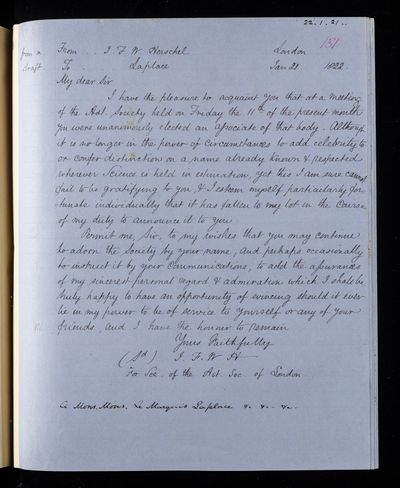 22.1.21..
151
from a draft
From .. J. F. W. Herschel London
To . Laplace Jan 21. 1822.
My dear Sir
I have the pleasure to acquaint you that at a meeting
of the Ast. Society held on Friday the 11th of the present month
you were unanimously elected an associate of that body. Although
it is no longer in the power of circumstances to add celebrity to
or confer distinction on a name already known & respected
wherever Science is held in estimation, yet this I am sure cannot
fail to be gratifying to you, & I esteem myself particularly for-
tunate individually that it has fallen to my lot in the course
of my duty to announce it to you
Permit me, Sir, to my wishes that you may continue
to adorn the Society by your name, and perhaps occasionally
to instruct it by your communications, to add the assurances
of my sincerest personal regard & admiration which I shall be
truly happy to have an opportunity of evincing should it ever
lie in my power to be of service to yourself or any of your
friends, and I have the honor to remain
Yours Faithfully
(Sd) J. F. W. H
For Sec. of the Ast. Soc. of London
A Mons. Mons. Le Marquis Laplace &. &. &.